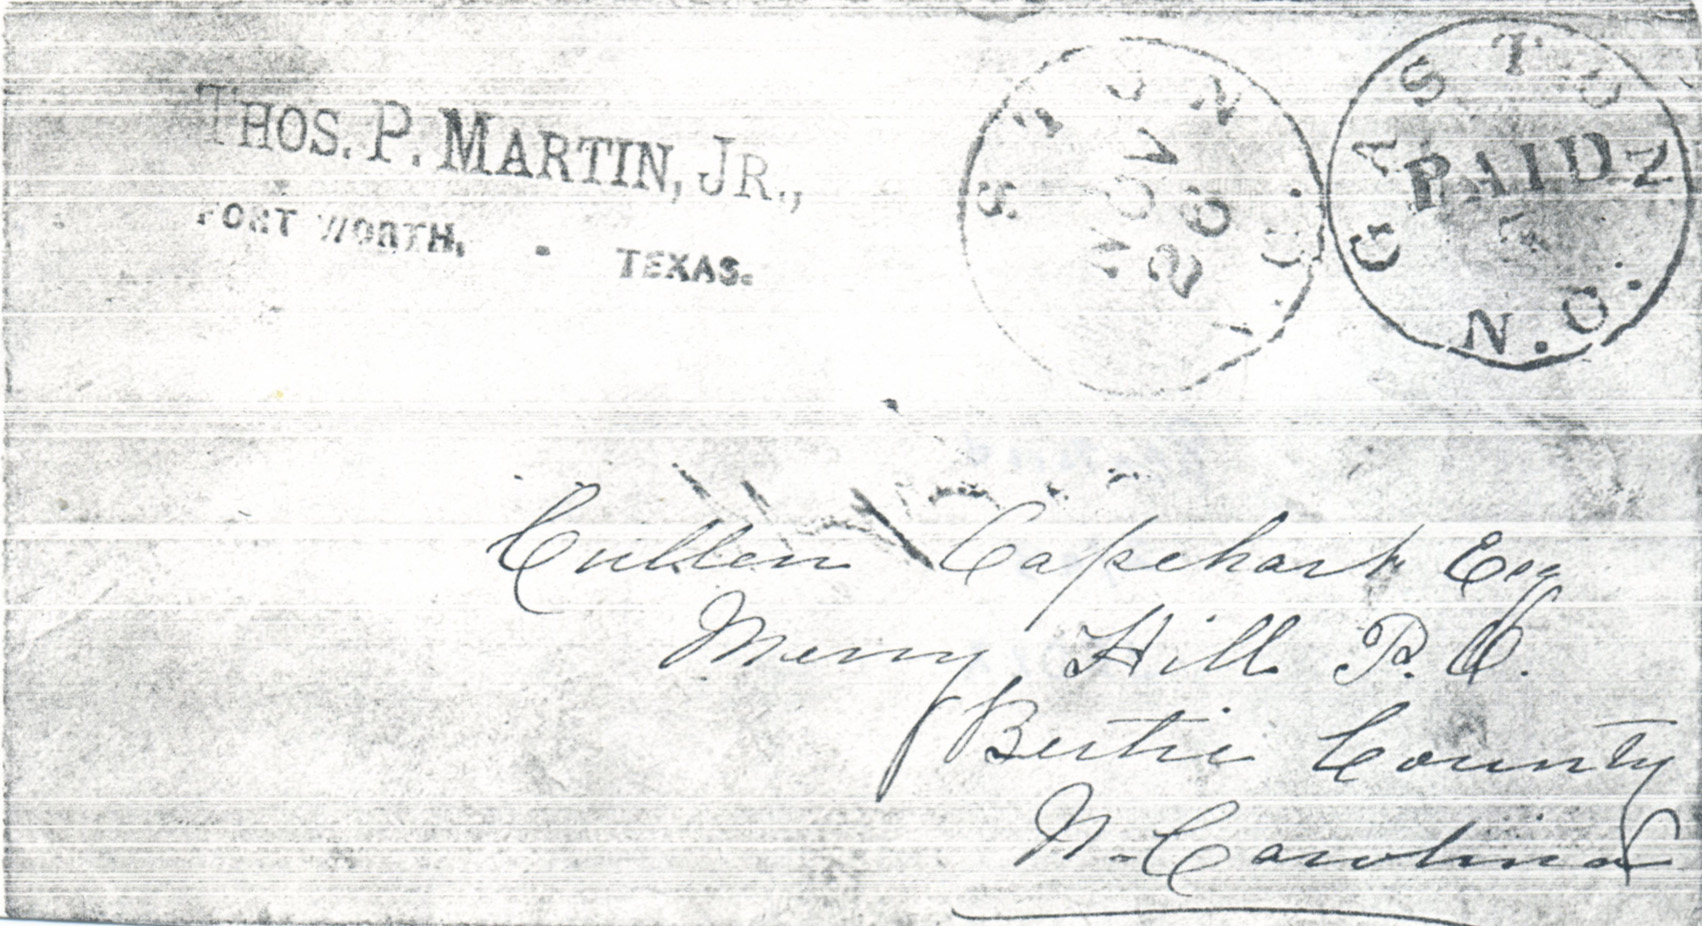 THOS. P. MARTIN, JR.,
FORT WORTH, - TEXAS.
STON N.C.
NOV
26
GASTON
PAID
5
N.C.
Cullen Capehart Esq
Merry Hill P. O.
Bertie County
N. Carolina